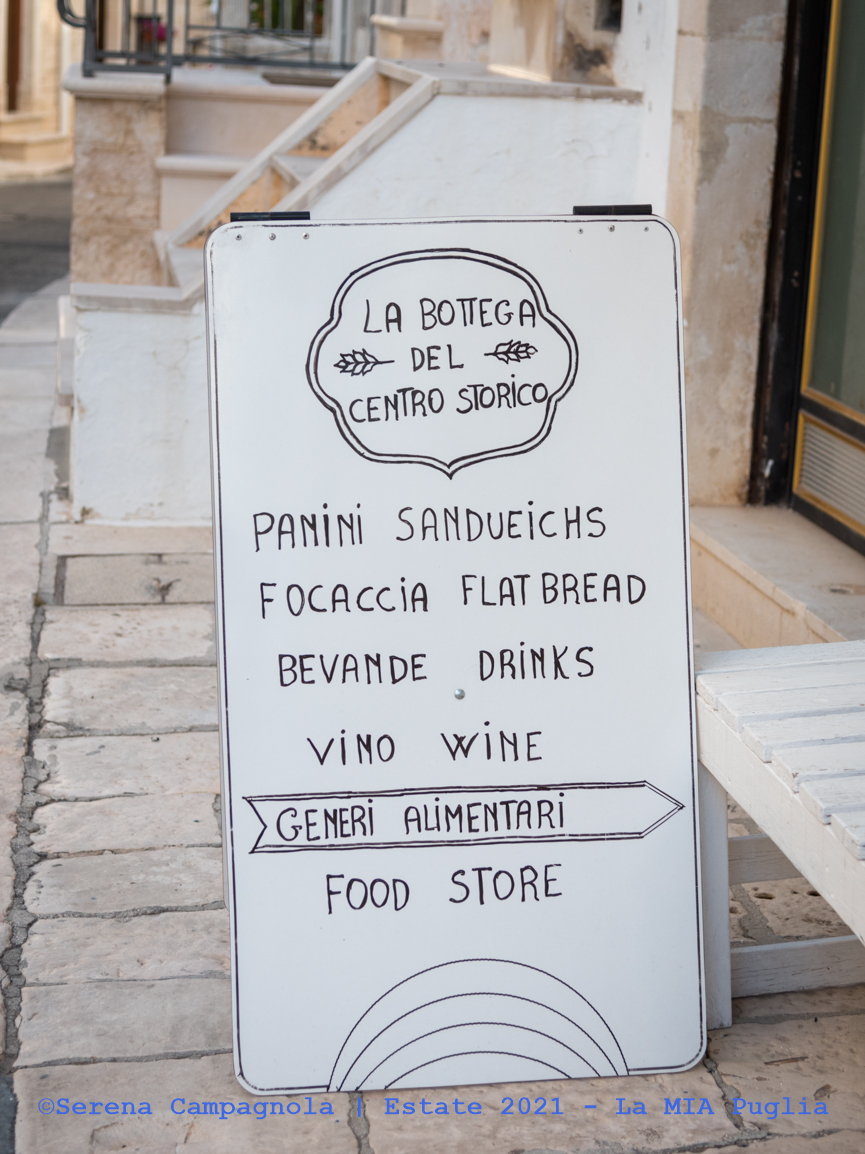 LA BOTTEGA
DEL
CENTRO STORICO
PANiNi SANDUEiCHS
FOCACCiA FLAT BREAD
BEVANDE DRiNKS
ViNO WiNE
GENERi ALiMENTARi
FOOD STORE
©Serena Campagnola | Estate 2021 - La MIA Puglia